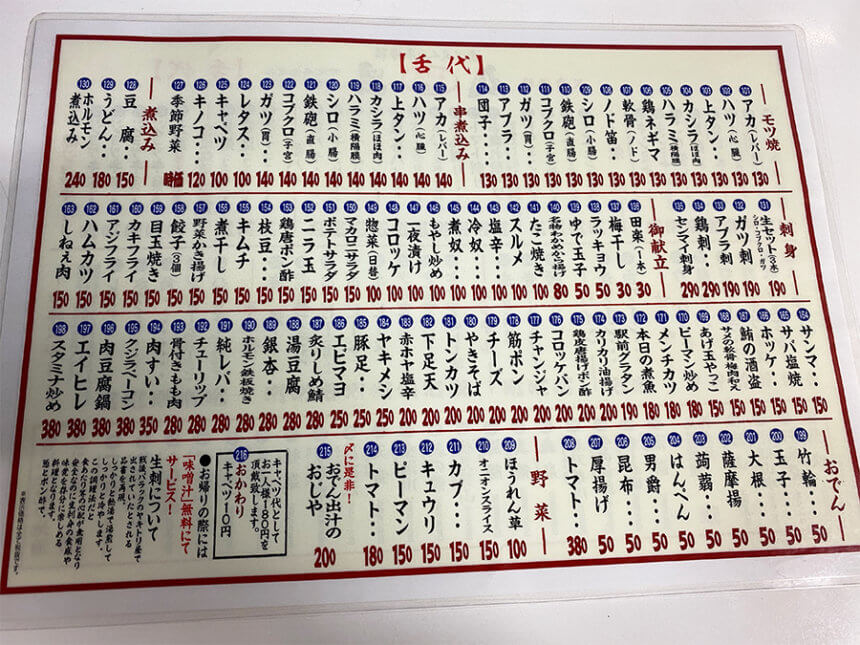 【舌代】
モツ焼
101 アカ(レバー) 130
102 ハツ(心臓) 130
103 上タン‥ 130
104 カシラ(ほほ肉) 130
105 ハラミ(横隔膜) 130
106 鶏ネギマ 130
107 軟骨(ノド) 130
108 ノド笛‥ 130
109 シロ(小腸) 130
110 鉄砲(直腸) 130
111 コブクロ(子宮) 130
112 ガツ(胃) 130
113 アブラ‥ 130
114 団子‥ 130
串煮込み
115 アカ(レバー) 140
116 ハツ(心臓) 140
117 上タン‥ 140
118 カシラ(ほほ肉) 140
119 ハラミ(横隔膜) 140
120 シロ(小腸) 140
121 鉄砲(直腸) 140
122 コブクロ(子宮) 140
123 ガツ(胃) 140
124 レタス‥ 100
125 キャベツ 100
126 キノコ‥ 120
127 季節野菜 時価
煮込み
128 豆腐‥ 150
129 うどん‥ 180
130 ホルモン煮込み 240
刺身
131 生セット(3本) シロ・コブクロ・ガツ 190
132 ガツ刺 190
133 アブラ刺 190
134 鶏刺‥ 290
135 センマイ刺身 290
御献立
136 田楽(1本) 30
137 梅干し 30
138 ラッキョウ 50
139 ゆで玉子 50
140 名物わかめから揚げ 80
141 たこ焼き 100
142 スルメ 100
143 塩辛‥ 100
144 冷奴‥ 100
145 煮奴‥ 100
146 もやし炒め 100
147 一夜漬け 100
148 コロッケ 100
149 惣菜(日替) 100
150 マカロニサラダ 150
151 ポテトサラダ 150
152 ニラ玉 150
153 鶏唐ポン酢 150
154 枝豆‥ 150
155 キムチ 150
156 煮干し 150
157 野菜かき揚げ 150
158 餃子(3個) 150
159 目玉焼き 150
160 カキフライ 150
161 アジフライ 150
162 ハムカツ 150
163 しねぇ肉 150
164 サンマ‥ 150
165 サバ塩焼 150
166 ホッケ‥ 150
167 鮪の酒盗 150
168 サメの軟骨梅肉和え 150
169 あげ玉やっこ 150
170 ピーマン炒め 180
171 メンチカツ 180
172 本日の煮魚 180
173 駅前グラタン 190
174 カリカリ油揚げ 200
175 鶏皮唐揚げポン酢 200
176 コロッケパン 200
177 チャンジャ 200
178 筋ポン 200
179 チーズ 200
180 やきそば 200
181 トンカツ 200
182 下足天 200
183 赤ホヤ塩辛 200
184 ヤキメシ 250
185 豚足‥ 250
186 エビマヨ 250
187 炙りしめ鯖 250
188 湯豆腐 280
189 銀杏‥ 280
190 ホルモン鉄板焼き 280
191 純レバ‥ 280
192 チューリップ 280
193 骨付きもも肉 280
194 肉すい‥ 350
195 クジラベーコン 380
196 肉豆腐鍋 380
197 エイヒレ 380
198 スタミナ炒め 380
おでん
199 竹輪‥ 50
200 玉子‥ 50
201 大根‥ 50
202 薩摩揚 50
203 蒟蒻‥ 50
204 はんぺん 50
205 男爵‥ 50
206 昆布‥ 50
207 厚揚げ 50
208 トマト‥ 380
野菜
209 ほうれん草 100
210 オニオンスライス 150
211 カブ‥ 150
212 キュウリ 150
213 ピーマン 150
214 トマト‥ 180
〆に是非!
215 おでん出汁のおじや 200
キャベツ代として
お一人様¥80円を
頂戴致します。
216 おかわり
キャベツ10円
●お帰りの際には
「味噌汁」無料にて
サービス!
生刺について
戦後、バラックのヤキトリ屋で
出されていたとされる
品書を再現。
しっかりと熱湯で湯煎して
しっかりと冷やします。
この調理法だと
安全なのに生刺身の食感や
味覚を存分に楽しめる
料理となります。
葱とポン酢で。
※表示価格は全て税抜です。